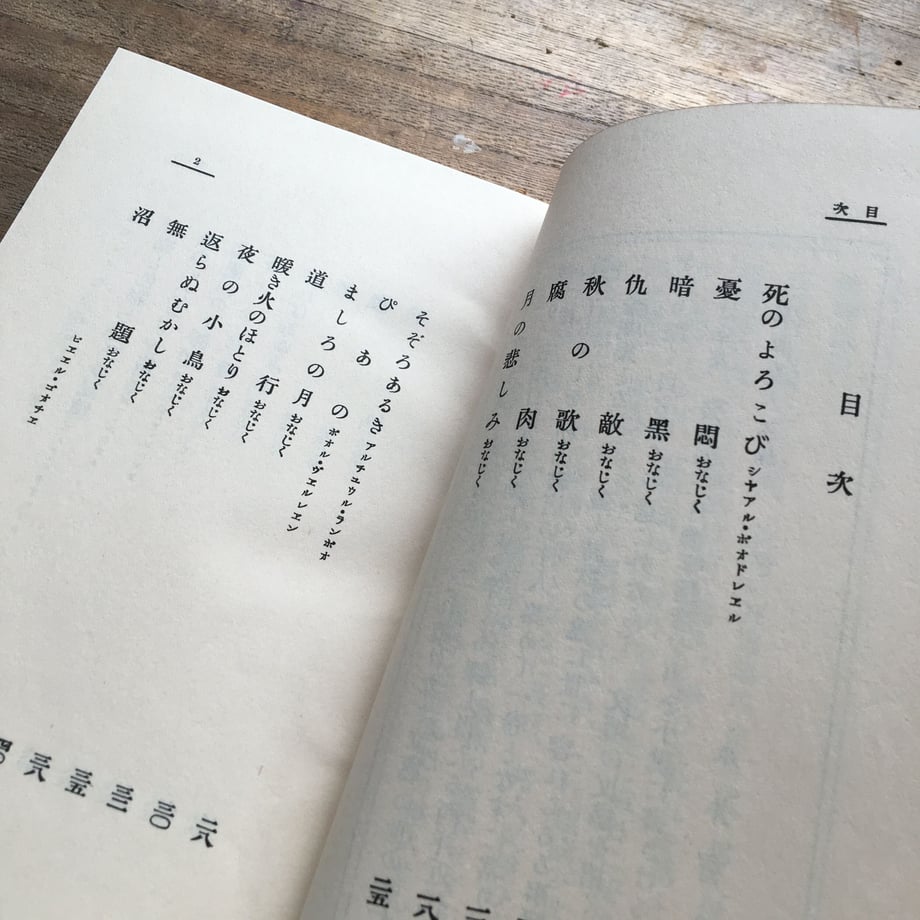 目次
目次
死のよろこび シヤアル・ボオドレエル
憂悶 おなじく
暗黒 おなじく
仇敵 おなじく
秋の歌 おなじく
腐肉 おなじく
月の悲しみ おなじく
一八
二五
2
そぞろあるき アルチュウル・ランボオ
ぴあの ポオル・ヴェルレエン
ましろの月 おなじく
道行 おなじく
暖き火のほとり おなじく
夜の小鳥 おなじく
返らぬむかし おなじく
無題 おなじく
沼 ピエエル・ゴオチエ
二八
三〇
三五
三八